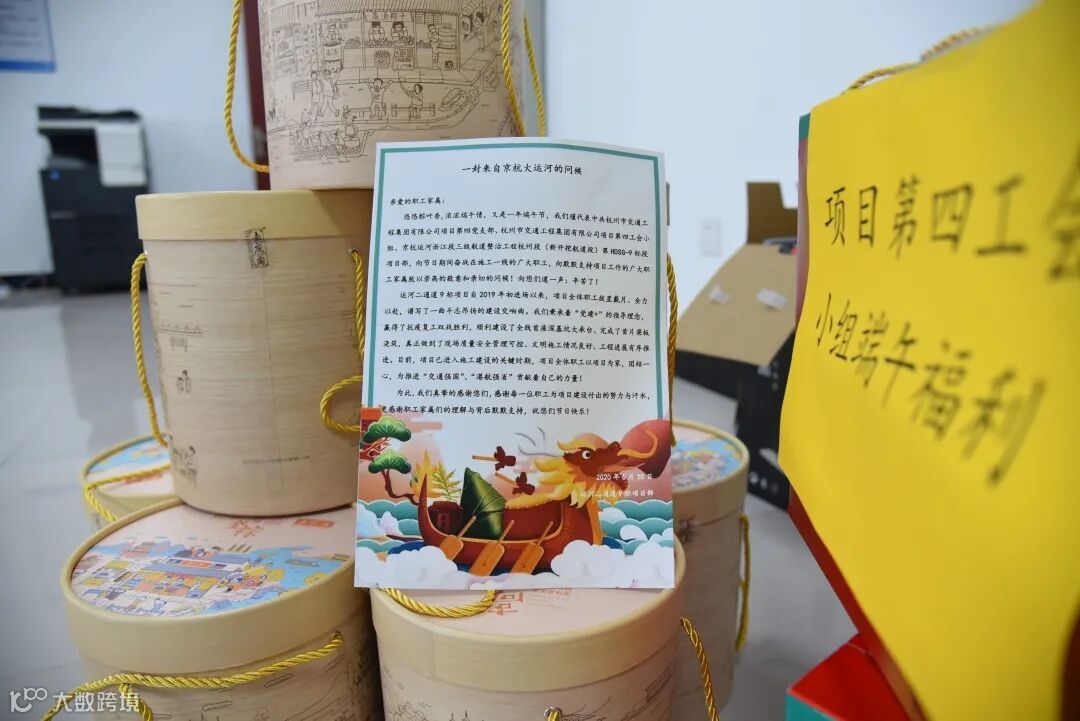 一封来自京杭大运河的问候
亲爱的职工家属：
悠悠粽叶香，浓浓端午情，又是一年端午节，我们谨代表中共杭州市交通工
程集团有限公司项目第四党支部、杭州市交通工程集团有限公司项目第四工会小
组、京杭运河浙江段三级航道整治工程杭州段（新开挖航道段）第HDSG-9标段
项目部，向节日期间奋战在施工一线的广大职工，向默默支持项目工作的广大职
工家属致以崇高的敬意和亲切的问候！向您们道一声：辛苦了！
运河二通道9标项目自2019年初进场以来，项目全体职工披星戴月、全力
以赴，谱写了一曲斗志昂扬的建设交响曲。我们秉承着“党建+”的指导理念，
赢得了抗疫复工双战胜利，顺利建设了全线首座深基坑大承台、完成了首片梁板
浇筑，真正做到了现场质量安全管理可控、文明施工情况良好、工程进展有序推
进。目前，项目已进入施工建设的关键时期，项目全体职工以项目为家，团结一
心，为推进“交通强国”、“港航强省”贡献着自己的力量！
为此，我们真挚的感谢您们，感谢每一位职工为项目建设付出的努力与汗水，
更感谢职工家属们的理解与背后默默支持，祝您们节日快乐！
2020年6月20日
运河二通道9标项目部
项目第四工会
小组端午福利
大数跨境